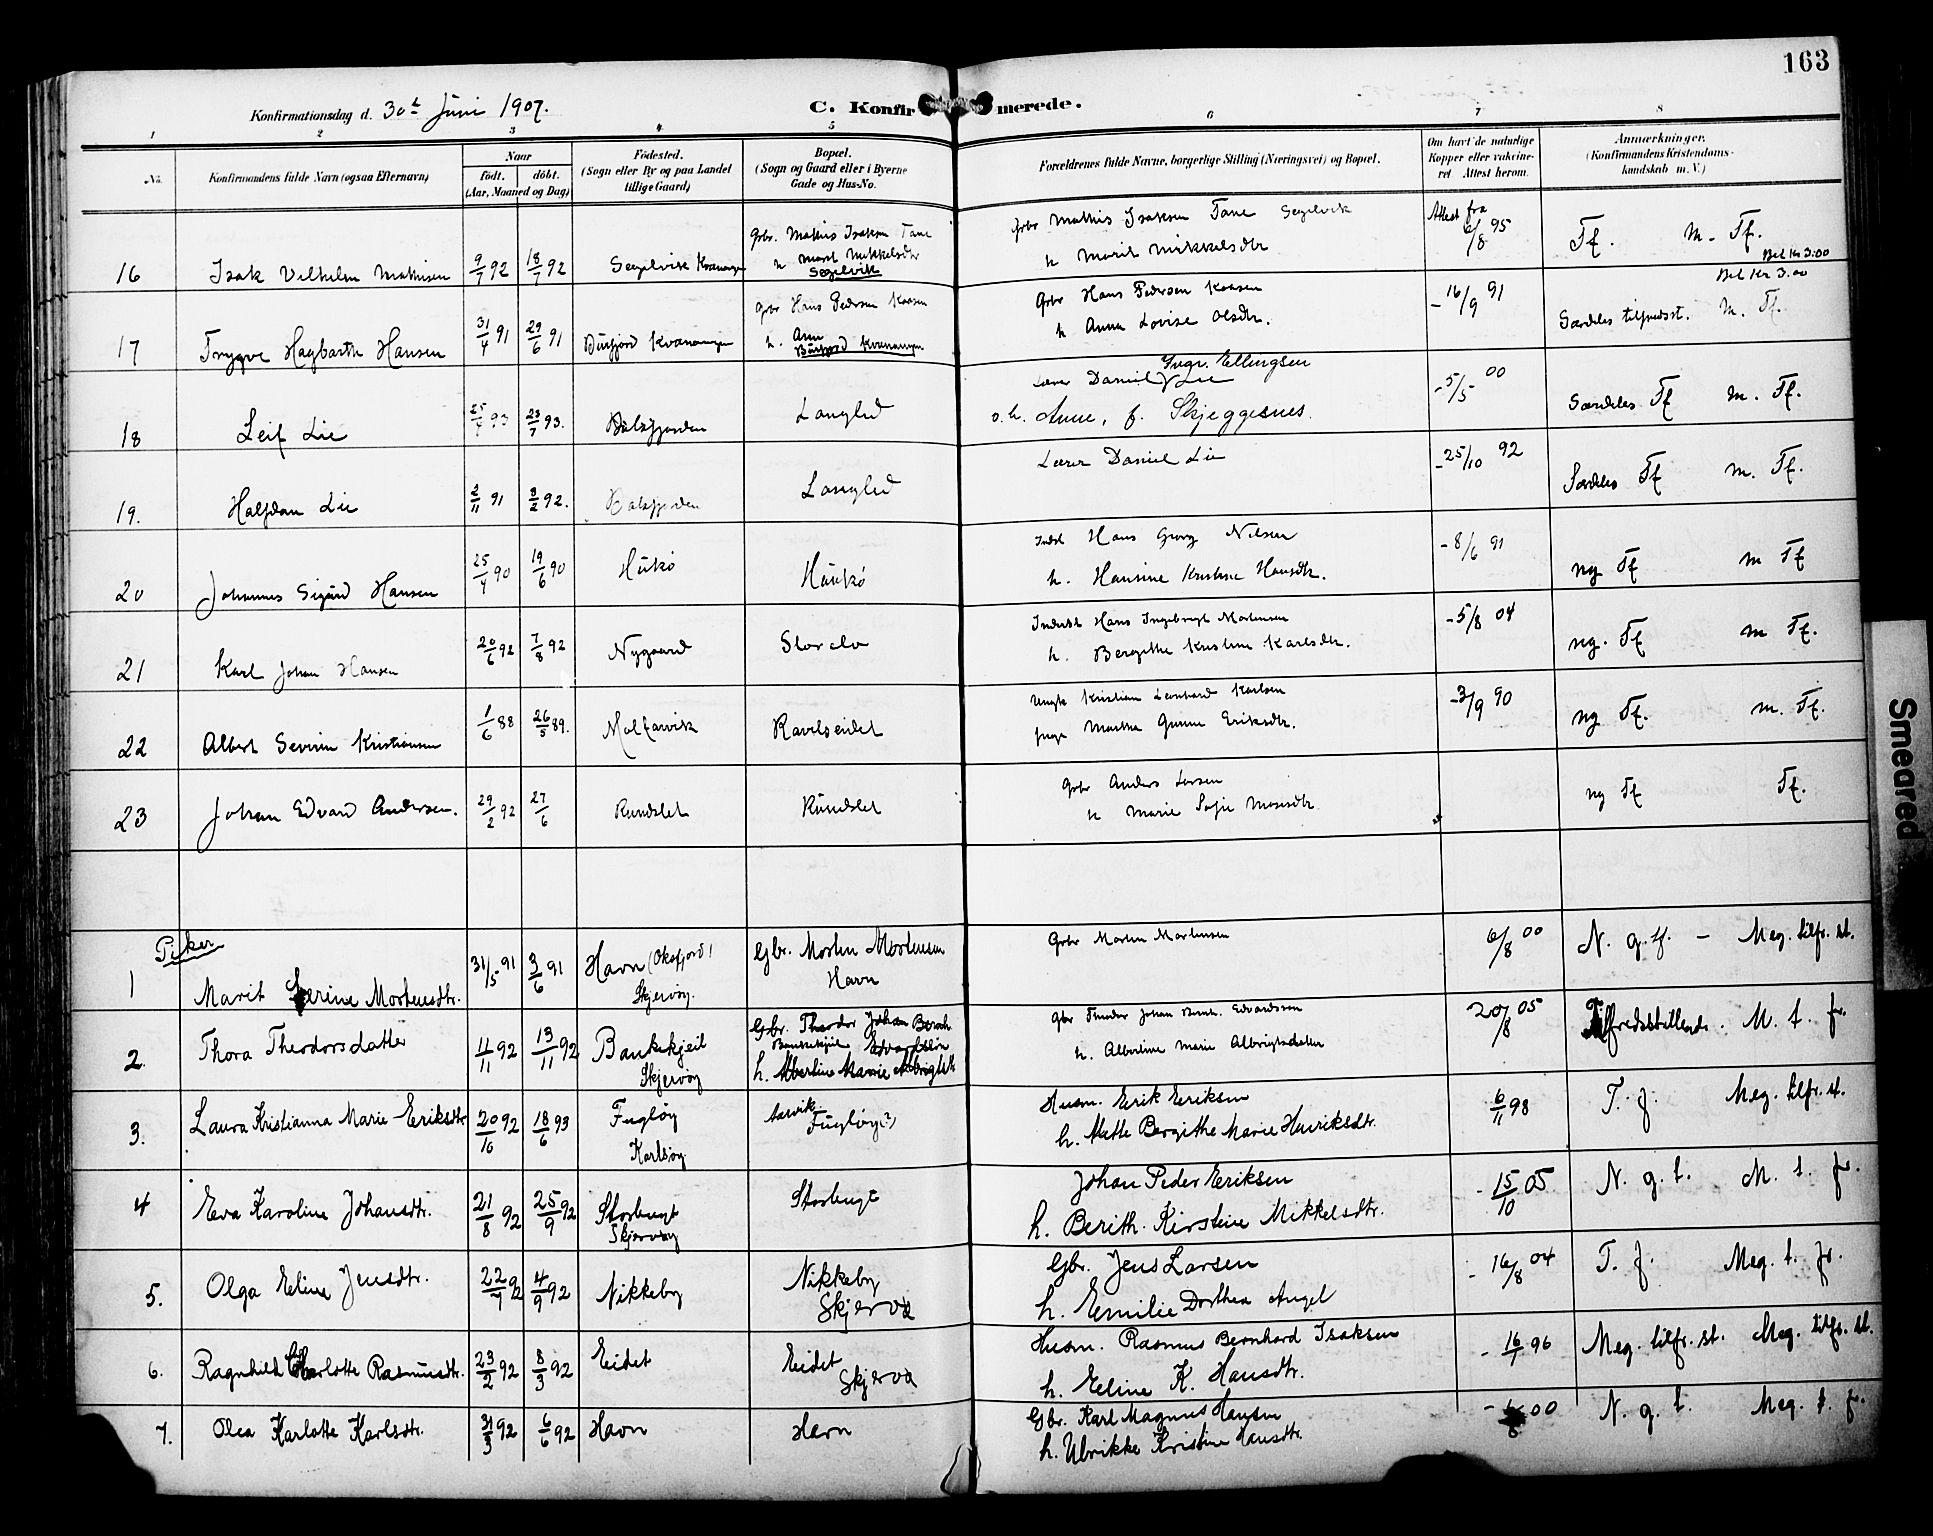 163
Konfirmationsdag d. 30te Juni 1907. C. Konfirmerede.
1 2 3 4 5 6 7 8
No. Konfirmandens fulde Navn (ogsaa Efternavn) Naar født. døbt. (Aar, Maaned og Dag) Fødested. (Sogn eller By og paa Landet tillige Gaard) Bopæl. (Sogn og Gaard eller i Byerne Gade og Hus-No. Forældrenes fulde Navne, borgerlige Stilling (Næringsvei) og Bopæl. Om havt de naturlige Kopper eller vakcineret Attest herom. Anmærkninger. (Konfirmandens Kristendomskundskab m. V.)
16 Isak Vilhelm Mathisen 9/7 92 18/7 92 Segelvik Kvænangen
Gbr. Mathis Isaksen Tane
h Marit Mikkelsdtr
Segelvik
Gbr Mathis Isaksen Tane Segelvik
h Marit Mikkelsdtr
Attest fra 6/8 95 Tf. M. Tf.
Bet Kr 3.00
17 Trygve Hagbarth Hansen 31/4 91 29/6 91 Burfjord Kvænangen
Gbr Hans Pedersen Kaasen
h. Anna
Burfjord Kvænangen
Gbr Hans Pedersen Kaasen
h Anna Lovise Olsdtr.
- 16/9 91 Særdeles tilfredsst. M. Tf.
Bet Kr 3.00
18 Leif Lie 25/4 93 23/7 93. Balsfjorden Langlid
Lærer Daniel Ingr. Ellingsen Lie
o. h. Anne, f. Skjeggesnes.
- 5/5 00 Særdeles Tf M. Tf.
19. Halfdan Lie 2/11 91 8/2 92. Balsfjorden Langlid
Lærer Daniel Lie
- 25/10 92 Særdeles Tf M. Tf.
20 Johannes Sigurd Hansen 25/4 90 19/6 90 Hukø Haukø
Inds Hans Georg Nilsen
h. Hansine Kristine Hansdtr.
- 8/6 91 ng Tf M Tf
21 Karl Johan Hansen 20/6 92 7/8 92 Nygaard Storelv
Inderst Hans Ingebrigt Mortensen
h. Bergithe Kristine Karlsdtr.
- 5/8 04 ng. Tf M Tf.
22 Albert Severin Kristiansen 1/6 88 26/5 89. Molfarvik Ravelseidet
Ungk Kristian Leonhard Karlsen
pige Martha Gurine Eriksdtr.
- 3/9 90 ng Tf. M. Tf.
23 Johan Edvard Andersen. 29/2 92 27/6 Rundslet Rundslet
Gbr Anders Larsen
h Marie Sofie Mosesdtr
ng Tf Tf.
Piker
1 Marit Serine Mortensdtr. 31/5 91 3/6 91
Havn (Oksfjord)
Skjervøy.
Gbr. Morten Mortensen
Havn
Gbr Morten Mortensen
6/8 00 N. g. tf. - Meg. tilfr. st.
2. Thora Theodorsdatter 11/11 92 13/11 92
Bankekjeil
Skjervøy
Gbr. Theodor Johan Bernh
Bankekjeil Edvardsen
h. Albertine Marie Albrigtsdtr
Gbr Theodor Johan Bernh. Edvardsen
h. Albertine Marie Albrigtsdatter
20/8 05 Tilfredsstillende. M. t. fr.
3. Laura Kristianna Marie Eriksdtr 20/10 92 18/6 93
Fugløy
Karlsøy
Aarvik
Fugløy(?)
Husm. Erik Eriksen
h. Mette Bergithe Marie Henriksdtr.
6/11 98 T. f. Meg. tilfr. st.
4 Eva Karoline Johansdtr. 21/8 92 25/9 92
Storbugt
Skjervøy
Storbugt
Johan Peder Eriksen
h. Berith. Kirstine Mikkelsdtr.
- 15/10 05 N. g. t. M. t. fr.
5. Olga Eline Jensdtr. 22/7 92 4/9 92 Nikkeby
Nikkeby
Skjervø
Gbr. Jens Larsen
h. Emilie Dorthea Angel
- 16/8 04 T. f. Meg. t. fr.
6. Ragnhild Charlotte Rasmusdtr. 23/2 92 8/3 92 Eidet
Eidet
Skjervø
Husm. Rasmus Bernhard Isaksen
h. Eeline K. Hansdtr.
- 16/7 96 Meg. tilfr. st. Meg. tilfr. st.
7. Olea Karlotte Karlsdtr. 31/3 92 6/6 92 Havn Havn
Gbr. Karl Magnus Hansen
h. Ulrikke Kristine Hansdtr.
- 6/8 00 N. g. t. Meg. t. fr.
Smeared